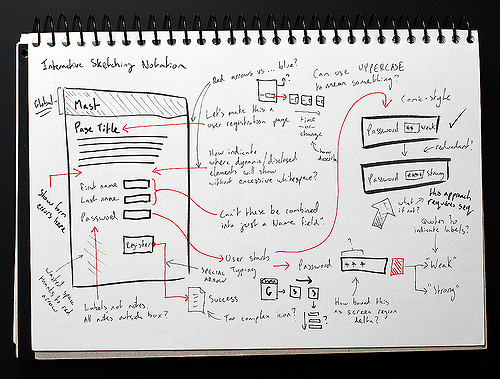 Interactive Sketching Notation
Global
Mast
Page Title
First name
Last name
Password
Register
Show form
errors here
Wasted space
thanks to red
arrow
Labels, not notes.
All notes outside box?
Red arrows vs... blue?
?
Let's make this a
user registration page
time
or
change
How indicate
where dynamic/disclosed
elements will show
without excessive whitespace?
Can't these be combined
into just a Name field?
User starts
Typing
SPECIAL
ARROW
Success
Too complex icon?
Can use UPPERCASE
to mean something?
Comic-style
Password ** weak
redundant!
Password **** strong
what
if not?
this approach
requires seq.
Quotes to
indicate labels?
"Weak"
"Strong"
Password
?
***
How bound this
as screen region
delta?
6